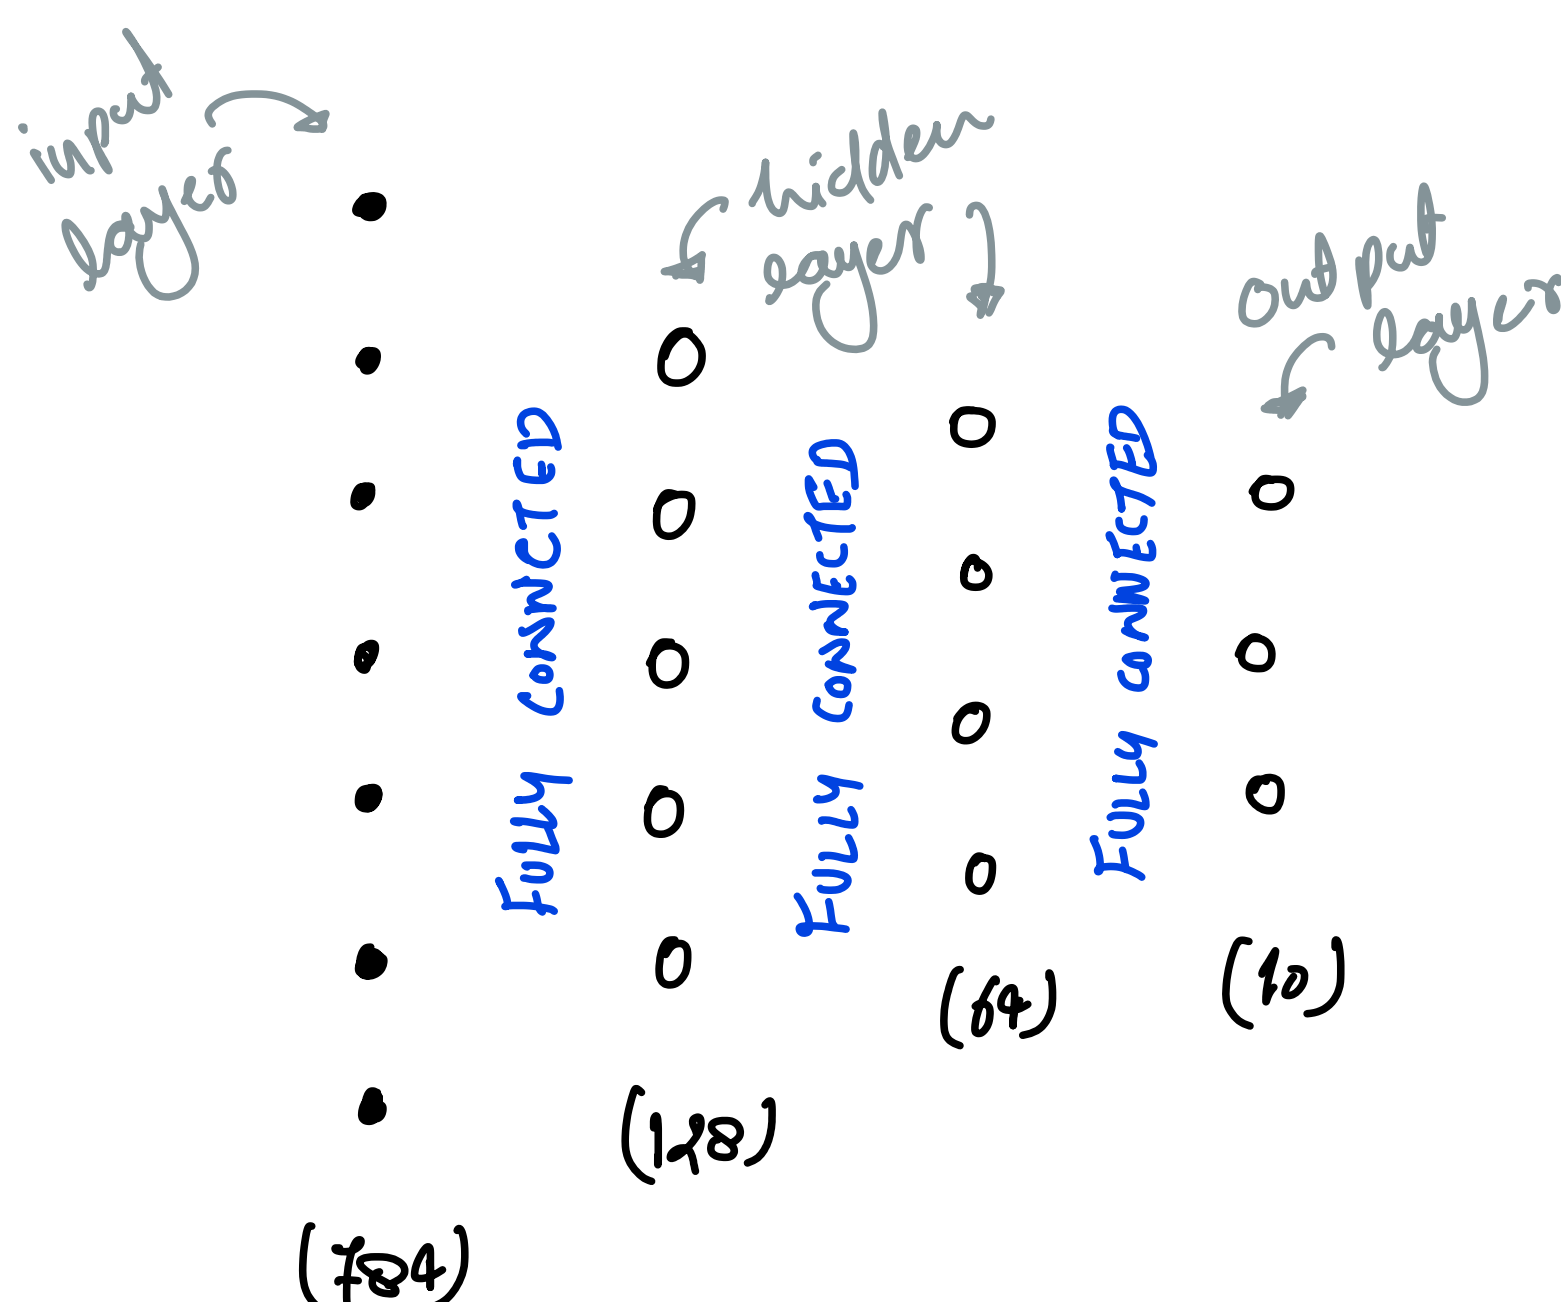 input
layer
hidden
layer
output
layer
FULLY CONNCTED
FULLY CONNECTED
FULLY CONNECTED
(784)
(128)
(64)
(10)